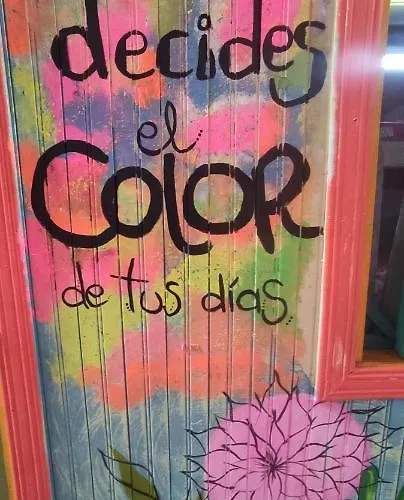 decides
el
COLOR
de tus días...